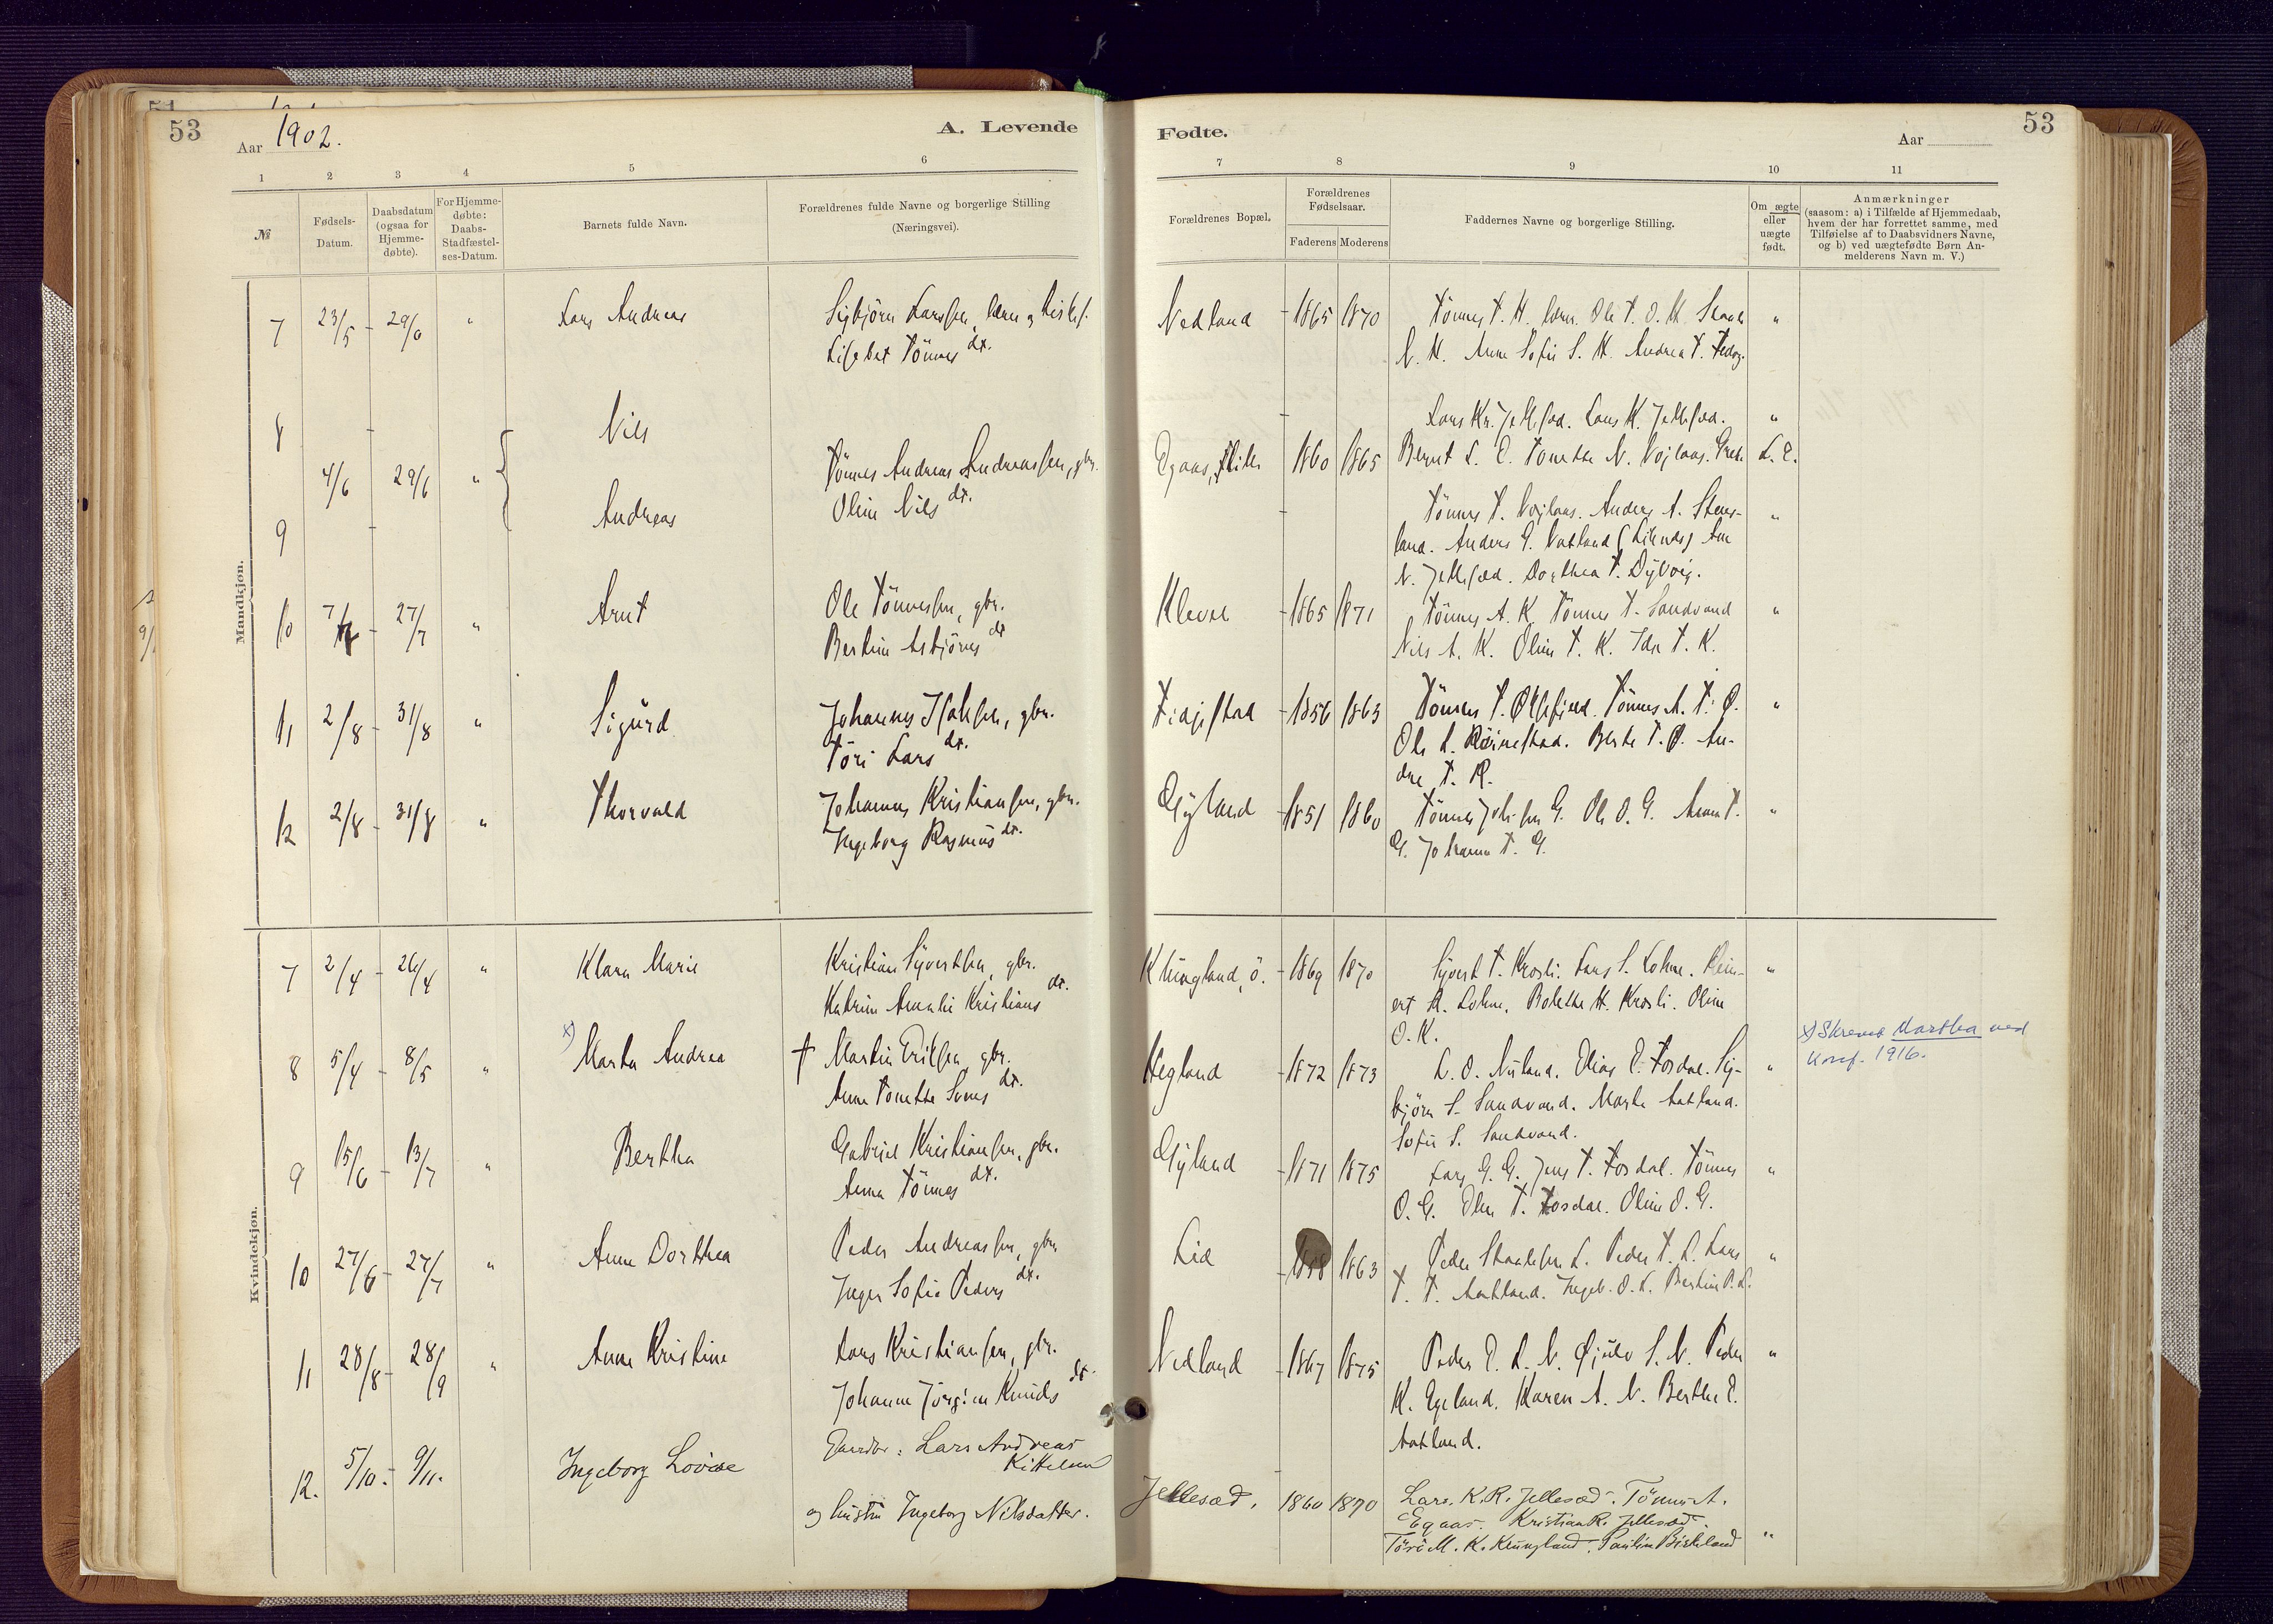 53
Aar 1902.
A. Levende
Fødte.
Aar
53
1 2 3 4 5 6
7 8 9 10 11
№
Fødsels-Datum.
Daabsdatum (ogsaa for Hjemme-døbte).
For Hjemme-døbte: Daabs-Stadfæstel-ses-Datum.
Barnets fulde Navn.
Forældrenes fulde Navne og borgerlige Stilling
(Næringsvei).
Forældrenes Bopæl.
Forældrenes Fødselsaar.
Faderens Moderens
Faddernes Navne og borgerlige Stilling.
Om ægte eller uægte født.
Anmærkninger
(saasom: a) i Tilfælde af Hjemmedaab,
hvem der har forrettet samme, med
Tilføielse af to Daabsvidners Navne,
og b) ved uægtefødte Børn An-
melderens Navn m. V.)
Mandkjøn.
7 23/5 - 29/6 " Lars Andreas
Lisebet Tönnes dt.
Nedland - 1865 1870 "
N. H. Anne Sofie S. H. Andrea T.
8 Nils
"
4/6 29/6 " Tönnes Andreas Andreassen, gbr.
Oline Nils dt.
Egaas, 1860 1865 Bernt L. E. Tonette N.
9 Andreas
Tönnes T. Anders A. Stens-
land. Anders G.
N. Jellesæd. Dorthea T. Dybvig.
"
10 7/7 - 27/7 " Arnt
Ole Tönnessen, gbr.
Bertine Asbjörns dt
Kleven - 1865 1871 Tönnes A. K. Tönnes T. Sandvand "
Nils A. K. Oline T. K. Ida T. K.
11 2/8 - 31/8 " Sigurd
Johannes Isaksen, gbr.
Töri Lars dt.
- 1856 1863 Tönnes T. Tönnes A. T. O. "
Ole L. Berte T. O. An-
drea T. R.
12 2/8 - 31/8 " Thorvald
Johannes Kristiansen, gbr.
Ingeborg Rasmus dt.
Gyland - 1851 1860 Tönnes G. Ole O. G. "
G. Johanna T. G.
Kvindekjøn.
7 2/4 - 26/4 " Klara Marie
Kristian Syvertsen, gbr.
Katrine Amalie Kristians dt.
Klungland, ö. - 1869 1870 Syvert T. Krosli. Lars S. Lohne. Rein- "
ert R. Lohne. Bolette H. Krosli. Oline
O. K.
8 5/4 - 8/5 " x) Marta Andrea
† Martin Eriksen, gbr.
Anne Tonette Sunes dt.
Hegland - 1872 1873 L. O. Elias E. Fosdal. Sig- "
björn S. Sandvand. Marta Aatland.
Sofie S. Sandvand.
x) Skrevet Martha ved
Konf. 1916.
9 15/6 - 13/7 " Bertha
Gabriel Kristiansen, gbr.
Anna Tönnes dt.
Gyland - 1871 1875 Lars G. G. Jens T. Fosdal. Tönnes "
O. G. T. Fosdal. Oline O. G.
10 27/6 - 27/7 " Anne Dorthea
Peder Andreassen, gbr.
Inger Sofie Peders dt.
Lid - 1858 1863 Peder L. Peder T. L. Lars "
T. T. Aatland. Ingeb. O. L. Bertine P. L.
11 28/8 - 28/9 " Anne Kristine
Lars Kristiansen, gbr.
Johanne Jörgine Knuds dt.
Nedland - 1867 1875 Peder E. L. N. Gjulv S. N. Peder "
K. Egeland. Karen A. N. Berthe E.
Aatland.
12. 5/10 - 9/11. Ingeborg Lovise
Gaardbr: Lars Andreas
Kittelsen
og hustru Ingeborg Nilsdatter.
Jellesæd. 1860 1870 Lars. K. R. Jellesæd. Tönnes A.
Egaas. Kristian R. Jellesæd.
Töri M. K. Klungland. Pauline Birkeland "